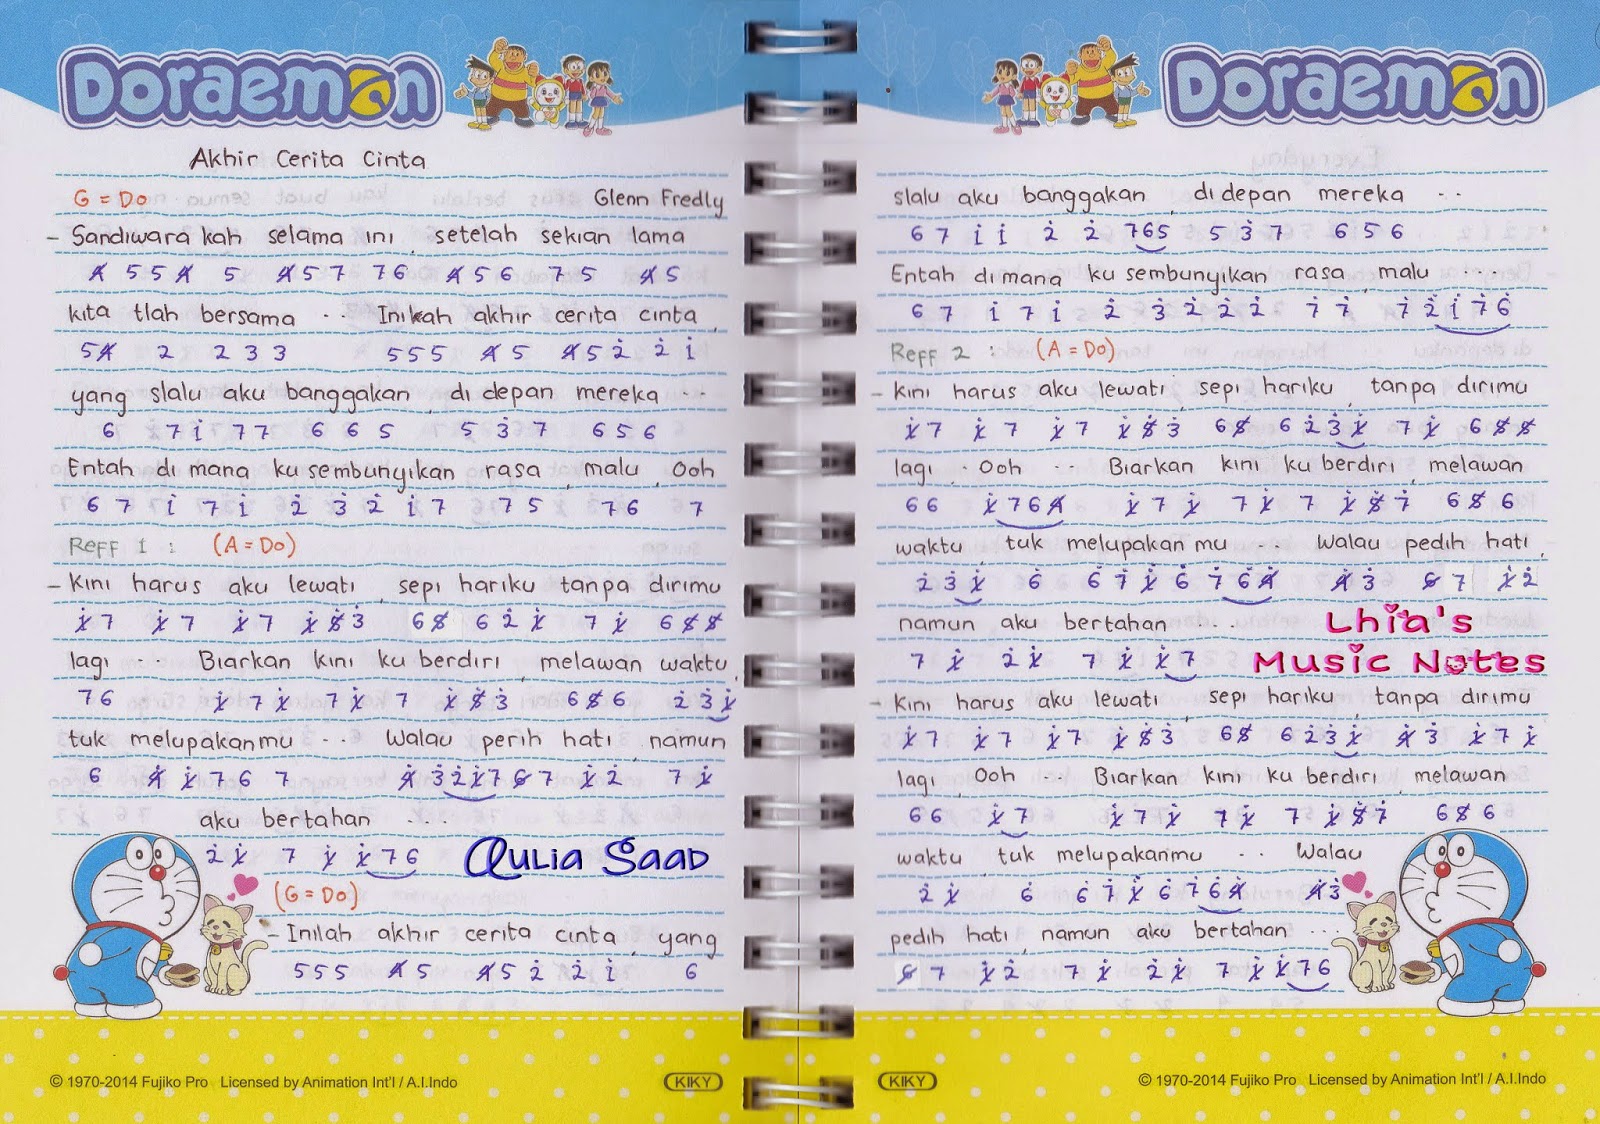 Doraemon
Akhir Cerita Cinta
G = Do Glenn Fredly
- Sandiwara kah selama ini, setelah sekian lama
4 5 5 4 5 4 5 7 7 6 4 5 6 7 5 4 5
kita tlah bersama ... Inikah akhir cerita cinta,
5 4 2 2 3 3 5 5 5 4 5 4 5 2̇ 2̇ 1̇
yang slalu aku banggakan, di depan mereka ...
6 7 1̇ 7 7 6 6 5 5 3̇ 7 6 5 6
Entah di mana ku sembunyikan rasa, malu, Ooh
6 7 1̇ 7 1̇ 2̇ 3̇ 2̇ 1̇ 7 7 5 7 6 7
Reff 1 : (A = Do)
- Kini harus aku lewati, sepi hariku tanpa dirimu
1̸̇ 7 1̸̇ 7 1̸̇ 7 1̸̇ 5̸̇ 3̇ 6 5̸ 6 2̇ 1̸̇ 7 1̸̇ 6 5̸ 5̸
lagi ... Biarkan kini ku berdiri, melawan waktu,
7 6 1̸̇ 7 1̸̇ 7 1̸̇ 7 1̸̇ 5̸̇ 3̇ 6 5̸ 6 2̇ 3̇ 1̸̇
tuk melupakanmu ... Walau perih hati, namun
6 4̸ 1̸̇ 7 6 7 4̸ 3̇ 2̇ 1̸̇ 7 6̸ 7 1̸̇ 2̇ 7 1̸̇
aku bertahan ...
2̇ 1̸̇ 7 1̸̇ 1̸̇ 7 6
Aulia Saad
(G = Do)
- Inilah akhir cerita cinta, yang
5 5 5 4̸ 5 4̸ 5 2̇ 2̇ 1̇ 6
© 1970-2014 Fujiko Pro Licensed by Animation Int'l / A.I.Indo
KIKY
Doraemon
slalu aku banggakan, di depan mereka ...
6 7 1̇ 1̇ 2̇ 2̇ 7 6 5 5 3̇ 7 6 5 6
Entah di mana ku sembunyikan rasa, malu ...
6 7 1̇ 7 1̇ 2̇ 3̇ 2̇ 2̇ 2̇ 7̇ 7̇ 7̇ 2̇ 1̇ 7̇ 6̇
Reff 2 : (A = Do)
- Kini harus aku lewati, sepi hariku, tanpa dirimu
1̸̇ 7 1̸̇ 7 1̸̇ 7 1̸̇ 5̸̇ 3̇ 6 5̸ 6 2̇ 3̇ 1̸̇ 7 1̸̇ 6 5̸ 5̸
lagi, Ooh ... Biarkan kini ku berdiri, melawan
6 6 1̸̇ 7 6 4̸ 1̸̇ 7 1̸̇ 7 1̸̇ 7 1̸̇ 5̸̇ 7̇ 6 5̸ 6
waktu, tuk melupakan mu ... Walau pedih hati,
2̇ 3̇ 1̸̇ 6̇ 6̇ 7̇ 1̸̇ 6̇ 7̇ 6̇ 4̸̇ 4̸ 3̇ 6̸ 7 1̸̇ 2̇
namun aku bertahan ...
7 1̸̇ 2̇ 1̸̇ 7 1̸̇ 1̸̇ 7
Lhia's
Music Notes
- Kini harus aku lewati, sepi hariku, tanpa dirimu
1̸̇ 7 1̸̇ 7 1̸̇ 7 1̸̇ 5̸̇ 3̇ 6 5̸ 6 2̇ 3̇ 1̸̇ 4̸̇ 3̇ 1̸̇ 7 1̸̇
lagi, Ooh ... Biarkan kini ku berdiri, melawan
6 6 1̸̇ 7̇ 1̸̇ 7 1̸̇ 7 1̸̇ 7 1̸̇ 5̸̇ 7̇ 6 5̸ 6
waktu, tuk melupakanmu ... Walau
2̇ 1̸̇ 6̇ 6̇ 7̇ 1̸̇ 6̇ 7̇ 6̇ 4̸̇ 4̸ 3̇
pedih hati, namun aku bertahan ...
6̸ 7 1̸̇ 2̇ 7 1̸̇ 2̇ 1̸̇ 7 1̸̇ 1̸̇ 7 6
KIKY
© 1970-2014 Fujiko Pro Licensed by Animation Int'l / A.I.Indo